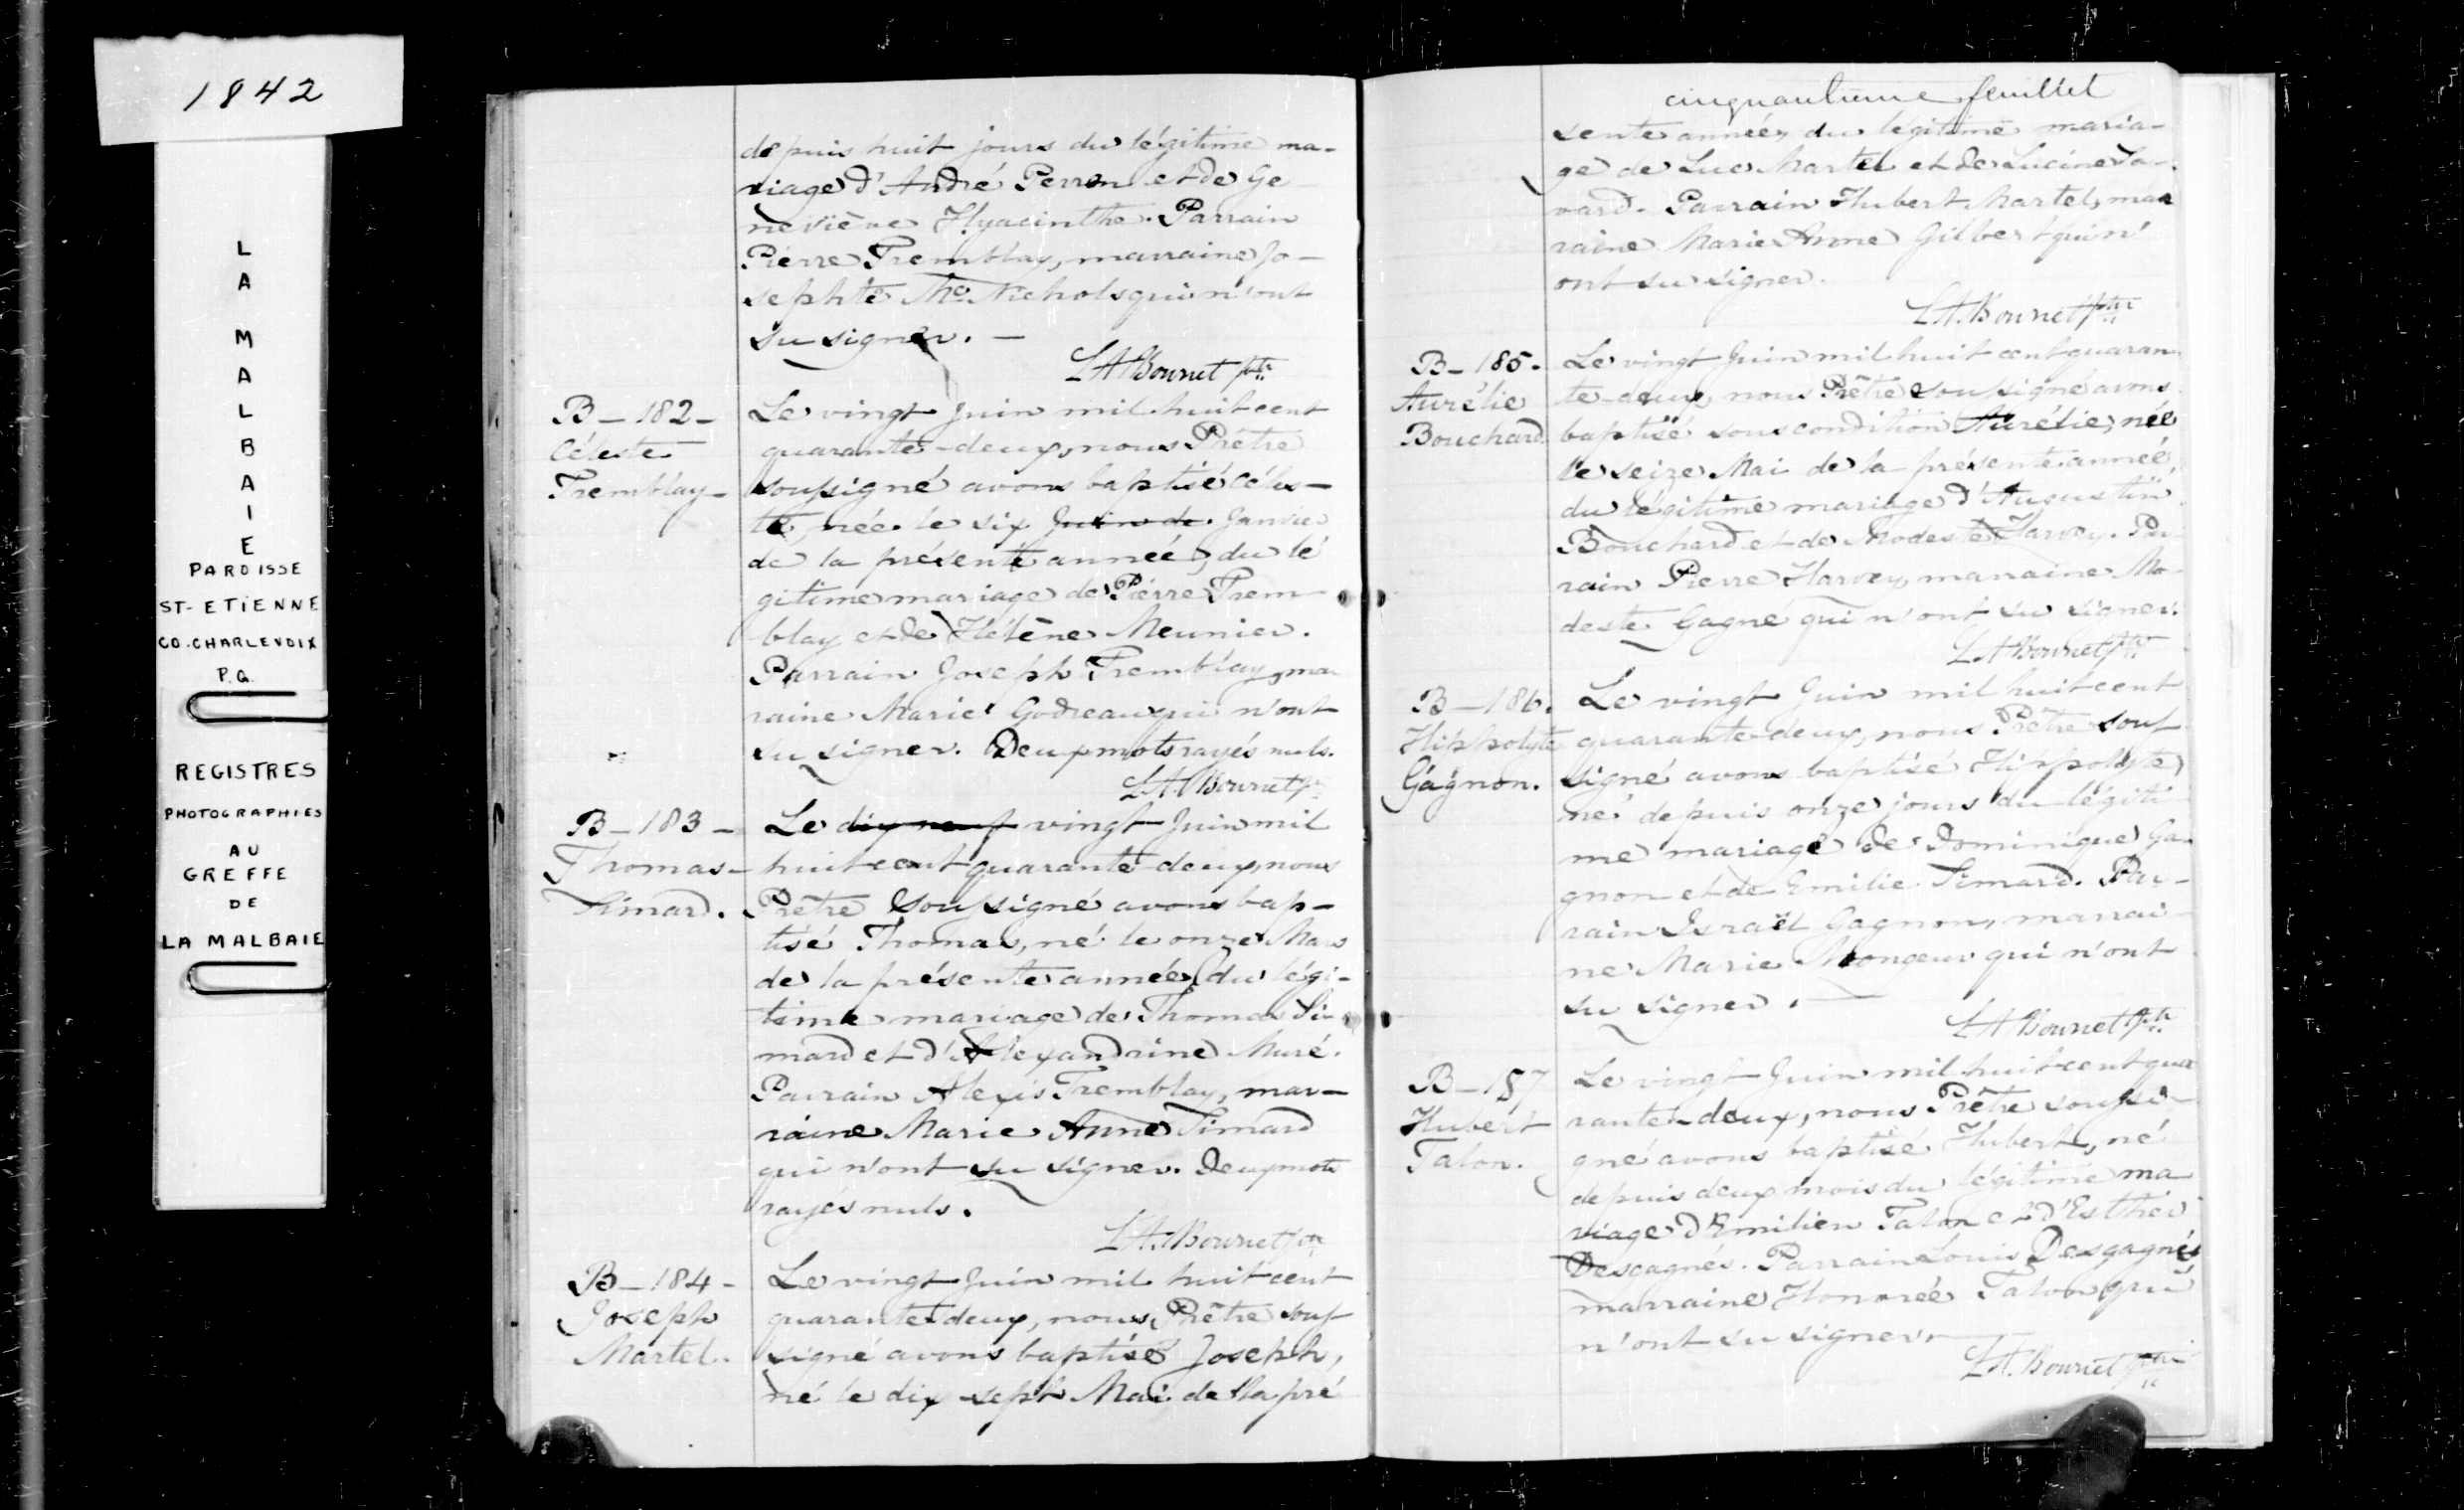 1842
LA MALBAIE
PAROISSE
ST-ETIENNE
CO. CHARLEVOIX
P.Q.
REGISTRES
PHOTOGRAPHIES
AU
GREFFE
DE
LA MALBAIE
depuis huit jours du légitime ma-
riage d'André Perron et de Ge
neviève Hyacinthe. Parrain
Pierre Tremblay, marraine Jo-
sephte Mc Nichols qui n'ont
su signer. —
L A Bournet ptre
B-182-
Céleste
Tremblay-
Le vingt Juin mil huit cent
quarante-deux, nous Prêtre
soussigné avons baptisé Céles-
te, née le six Juin de Janvier
de la présente année, du lé
gitime mariage de Pierre Trem-
blay et de Hélène Meunier.
Parrain Joseph Tremblay, mar
raine Marie Godreau qui n'ont
su signer. Deux mots rayés nuls.
L.A. Bournet ptre
B-183-
Thomas-
Simard.
Le dix neuf vingt Juin mil
huit cent quarante-deux, nous
Prêtre soussigné avons bap-
tisé Thomas, né le onze Mars
de la présente année, du légi-
time mariage de Thomas Si
mard et d'Alexandrine Muré.
Parrain Alexis Tremblay, mar-
raine Marie Anne Simard
qui n'ont su signer. Deux mots
rayés nuls.
L.A. Bournet ptre
B-184-
Joseph
Martel.
Le vingt Juin mil huit cent
quarante deux, nous Prêtre sous
signé avons baptisé Joseph,
né le dix-sept Mai de la pré
cinquantième feuillet
sente année, du légitime maria-
ge de Luc Martel et de Lucine Sa-
vard. Parrain Hubert Martel, mar
raine Marie Anne Gilbert qui n'
ont su signer.
L.A. Bournet ptre
B-185.
Aurélie
Bouchard
Le vingt Juin mil huit cent quaran
te-deux, nous Prêtre soussigné avons
baptisé sous condition Aurélie, née
le seize Mai de la présente année,
du légitime mariage d'Augustin
Bouchard et de Modeste Harvey. Par
rain Pierre Harvey, marraine Mo
deste Gagné qui n'ont su signer.
L A Bournet ptre
B-186.
Hippolyte
Gagnon.
Le vingt Juin mil huit cent
quarante-deux, nous Prêtre sous
signé avons baptisé Hippolyte
né depuis onze jours du légiti
me mariage de Dominique Ga-
gnon et de Emilie Simard. Par-
rain Israël Gagnon, marrai-
ne Marie qui n'ont
su signer. —
L A Bournet ptre
B-187
Hubert
Talon.
Le vingt Juin mil huit cent qua
rante-deux, nous Prêtre soussi-
gné avons baptisé Hubert, né
depuis deux mois du légitime ma
riage d'Emilien Talon et d'Esther
Desgagnés. Parrain Louis Desgagnés
marraine Honorée Talon qui
n'ont su signer.
L.A. Bournet ptre